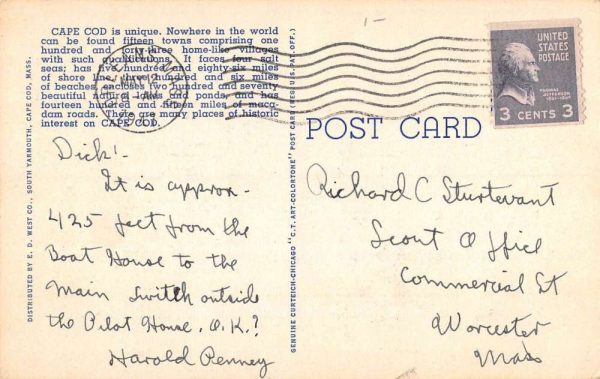 1-
CAPE COD is unique. Nowhere in the world
can be found fifteen towns comprising one
hundred and forty-three home-like villages
with such qualifications. It faces four salt
seas; has five hundred and eighty-six miles
of shore line, three hundred and six miles
of beaches, encloses two hundred and seventy
beautiful natural lakes and ponds, and has
fourteen hundred and fifteen miles of maca-
dam roads. There are many places of historic
interest on CAPE COD.
MAY 12
AM
UNITED
STATES
POSTAGE
THOMAS
JEFFERSON
3 CENTS 3
POST CARD
Dick!-
It is approx-
425 feet from the
Boat House to the
Main Switch outside
the Pilot House. O.K.?
Harold Penney
Richard C Sturtevant
Scout Office
Commercial St
Worcester
Mass
DISTRIBUTED BY E. D. WEST CO., SOUTH YARMOUTH, CAPE COD, MASS.
GENUINE CURTEICH-CHICAGO "C.T. ART-COLORTONE" POST CARD (REG. U.S. PAT. OFF.)